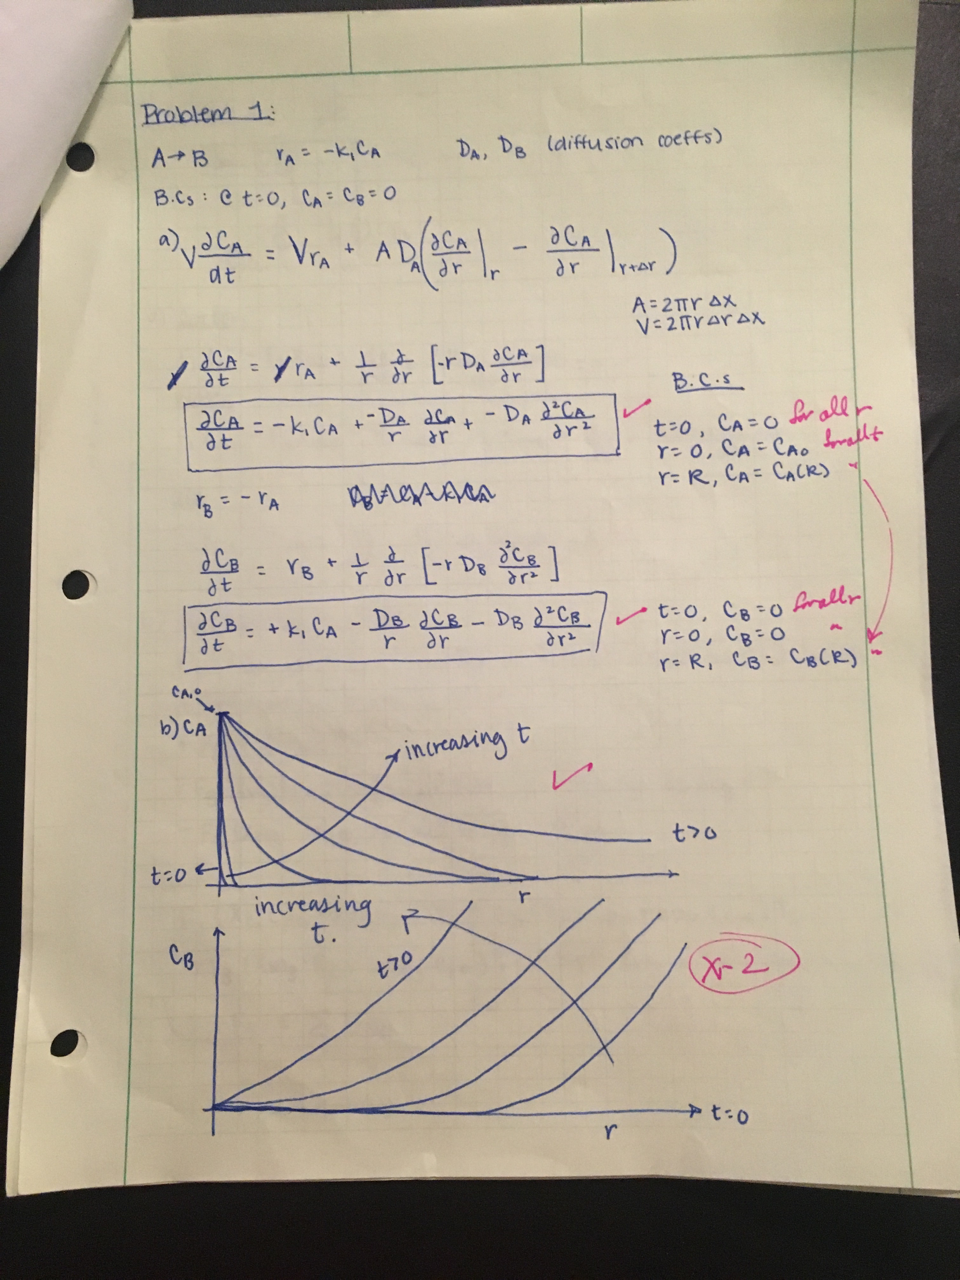 Problem 1:
A→B r_A = -k₁C_A D_A, D_B (diffusion coeffs)
B.Cs: @ t=0, C_A = C_B = 0
a) V ∂C_A/dt = V r_A + A D_A (∂C_A/∂r |_r - ∂C_A/∂r |_r+Δr)
A = 2πr Δx
V = 2πr Δr Δx
∂C_A/∂t = r_A + 1/r ∂/∂r [-r D_A ∂C_A/∂r]
B.C.s
∂C_A/∂t = -k₁C_A + -D_A/r ∂C_A/∂r + -D_A ∂²C_A/∂r² ✓
t=0, C_A = 0 for all r
r=0, C_A = C_A₀ for all t
r=R, C_A = C_A(R) "
r_B = -r_A
∂C_B/∂t = r_B + 1/r ∂/∂r [-r D_B ∂²C_B/∂r²]
∂C_B/∂t = +k₁C_A - D_B/r ∂C_B/∂r - D_B ∂²C_B/∂r² ✓
t=0, C_B = 0 for all r
r=0, C_B = 0 "
r=R, C_B = C_B(R) "
C_A,0
b) C_A
increasing t
✓
t>0
t=0
r
increasing
t.
C_B
t>0
X-2
t=0
r